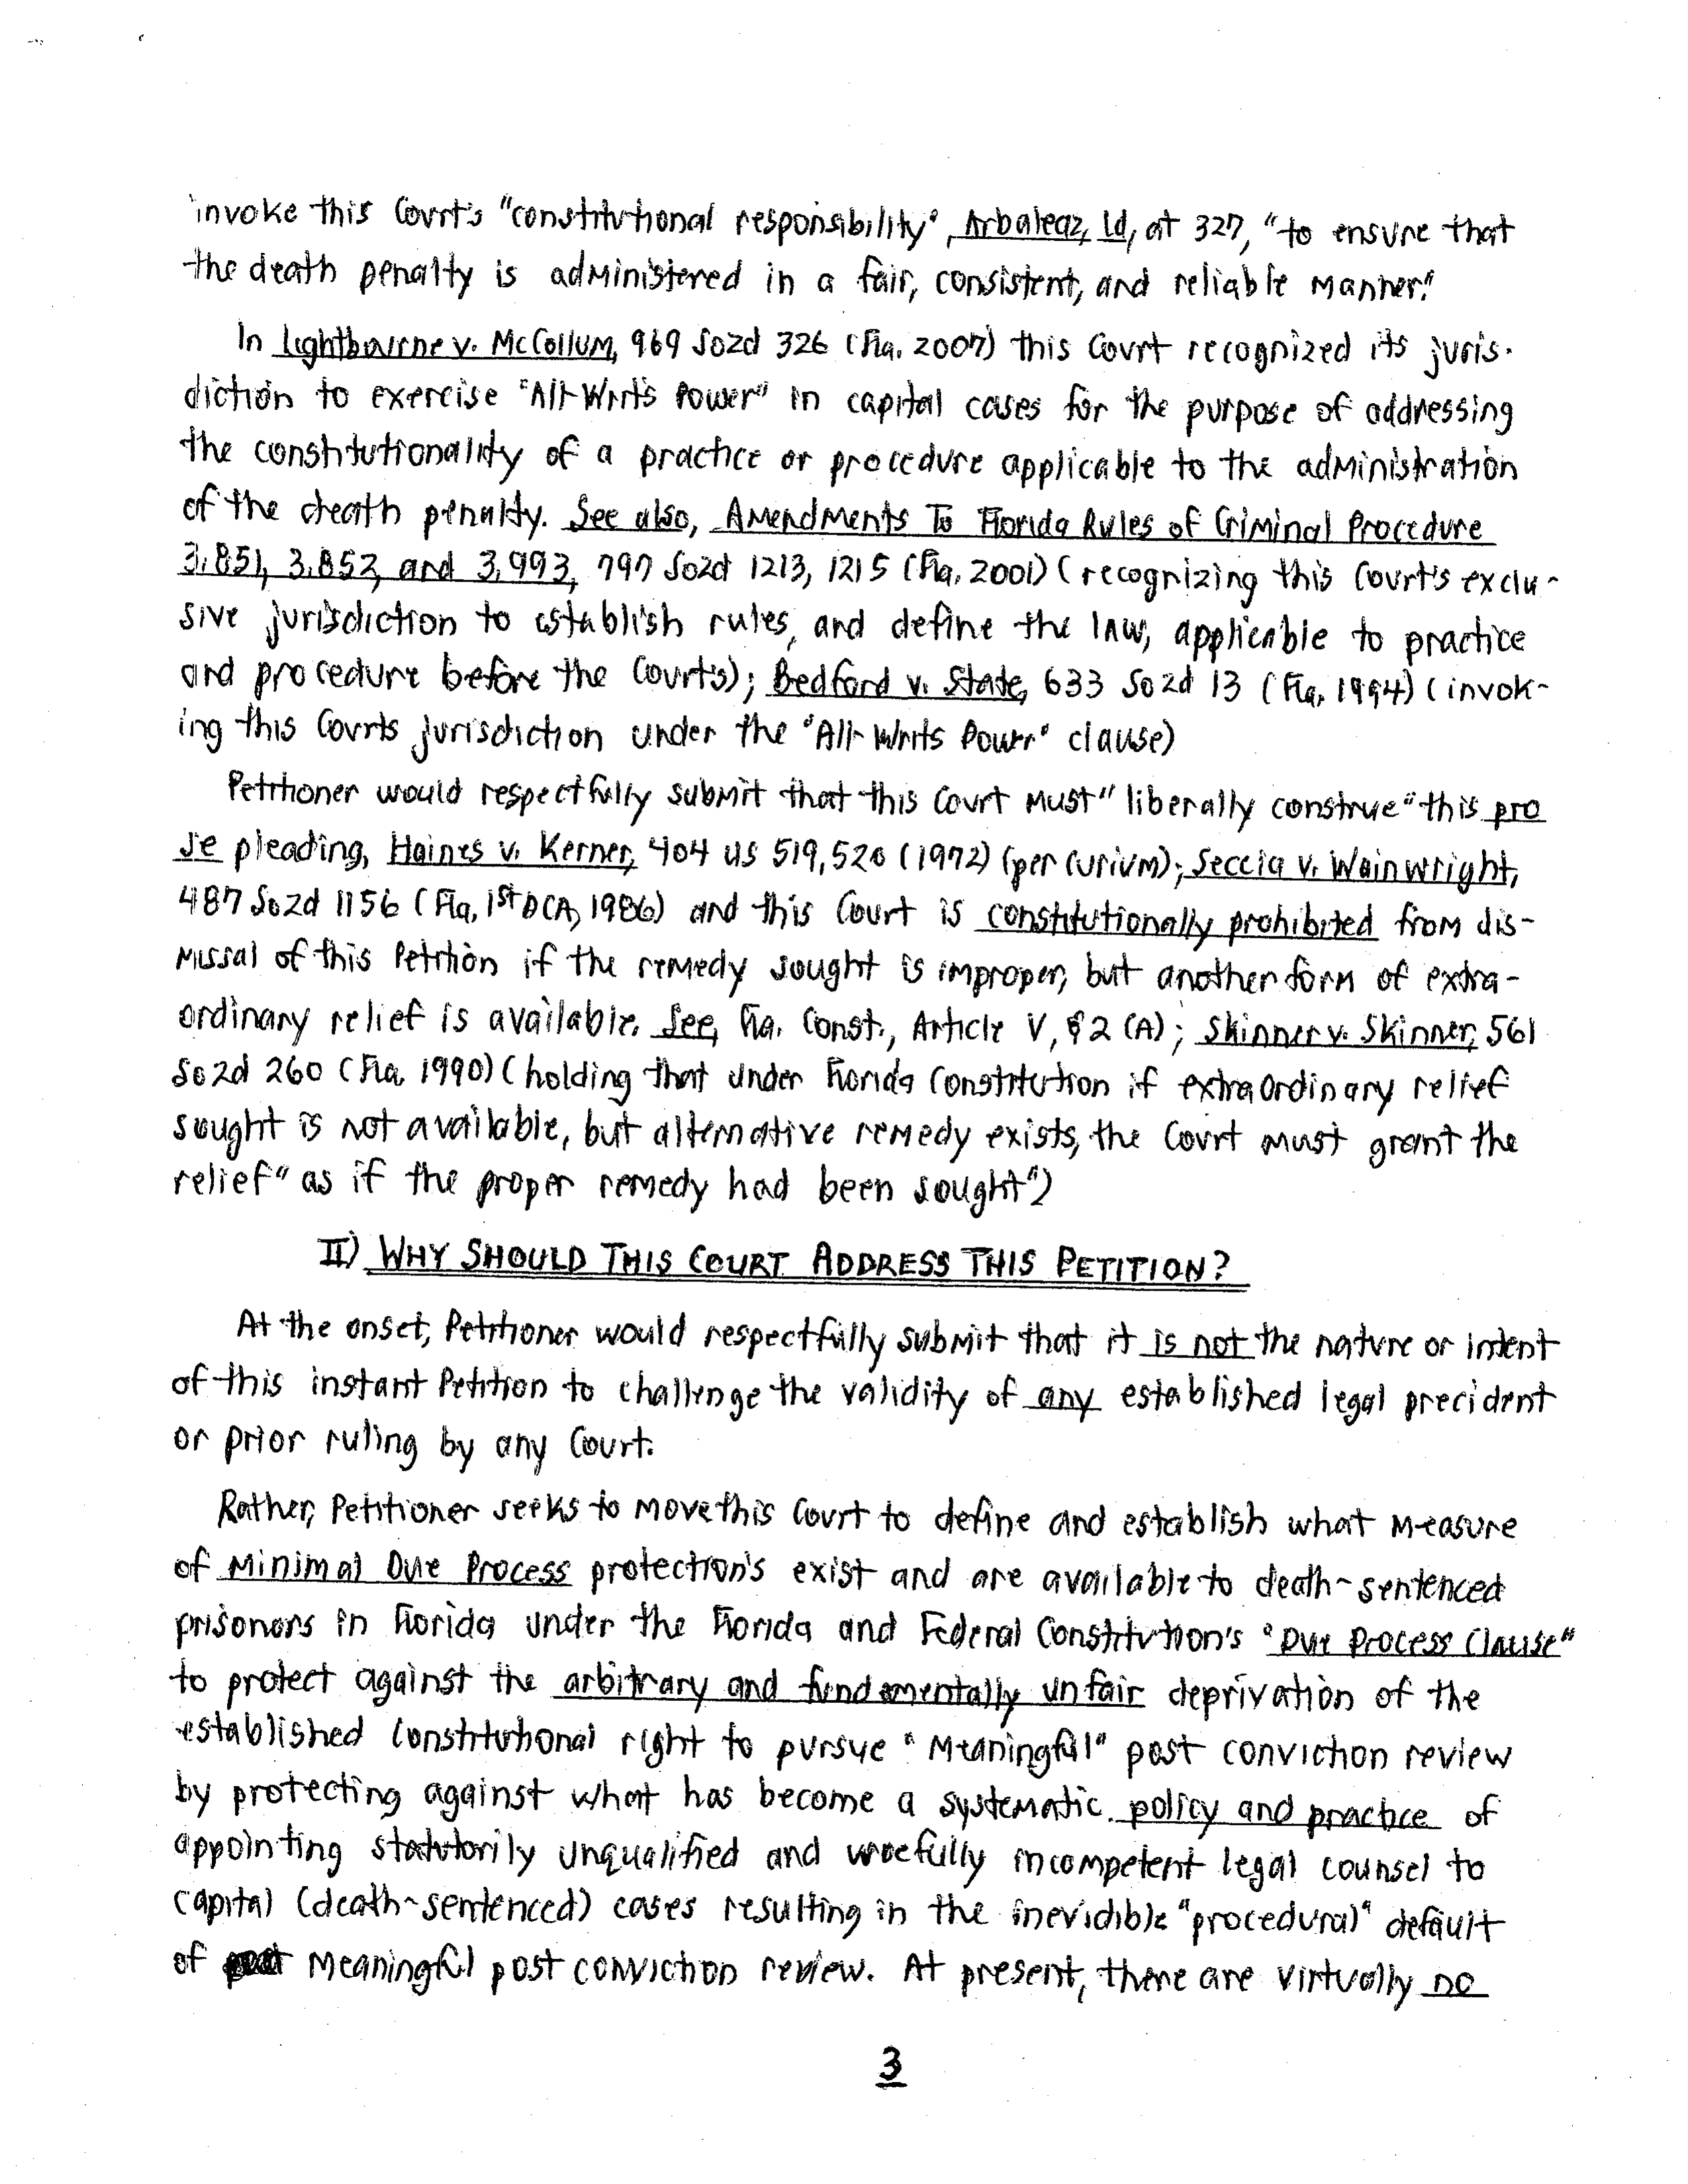 invoke this Court's "constitutional responsibility", Arbaleaz, Id, at 327, "to ensure that
the death penalty is administered in a fair, consistent, and reliable manner."
In Lightbourne v. McCollum, 969 So2d 326 (Fla. 2007) this Court recognized its juris-
diction to exercise "All-Writs Power" in capital cases for the purpose of addressing
the constitutionality of a practice or procedure applicable to the administration
of the death penalty. See also, Amendments To Florida Rules of Criminal Procedure
3.851, 3.852, and 3.993, 797 So2d 1213, 1215 (Fla, 2001) (recognizing this Court's exclu-
sive jurisdiction to establish rules, and define the law, applicable to practice
and procedure before the Courts); Bedford v. State, 633 So2d 13 (Fla, 1994) (invok-
ing this Courts jurisdiction under the "All-Writs Power" clause)
Petitioner would respectfully submit that this Court must "liberally construe" this pro
se pleading, Haines v. Kerner, 404 US 519, 520 (1972) (per curium); Seccia v. Wainwright,
487 So2d 1156 (Fla, 1st DCA, 1986) and this Court is constitutionally prohibited from dis-
missal of this Petition if the remedy sought is improper, but another form of extra-
ordinary relief is available. See, Fla. Const., Article V, § 2 (A); Skinner v. Skinner, 561
So2d 260 (Fla, 1990) (holding that under Florida Constitution if extraordinary relief
sought is not available, but alternative remedy exists, the Court must grant the
relief "as if the proper remedy had been sought")
II) WHY SHOULD THIS COURT ADDRESS THIS PETITION?
At the onset, Petitioner would respectfully submit that it is not the nature or intent
of this instant Petition to challenge the validity of any established legal precident
or prior ruling by any Court.
Rather, Petitioner seeks to move this Court to define and establish what measure
of Minimal Due Process protection's exist and are available to death-sentenced
prisoners in Florida under the Florida and Federal Constitution's "Due Process Clause"
to protect against the arbitrary and fundamentally unfair deprivation of the
established Constitutional right to pursue "Meaningful" post conviction review
by protecting against what has become a systematic policy and practice of
appointing statutorily unqualified and woefully incompetent legal counsel to
capital (death-sentenced) cases resulting in the inevidible "procedural" default
of meaningful post conviction review. At present, there are virtually no
3